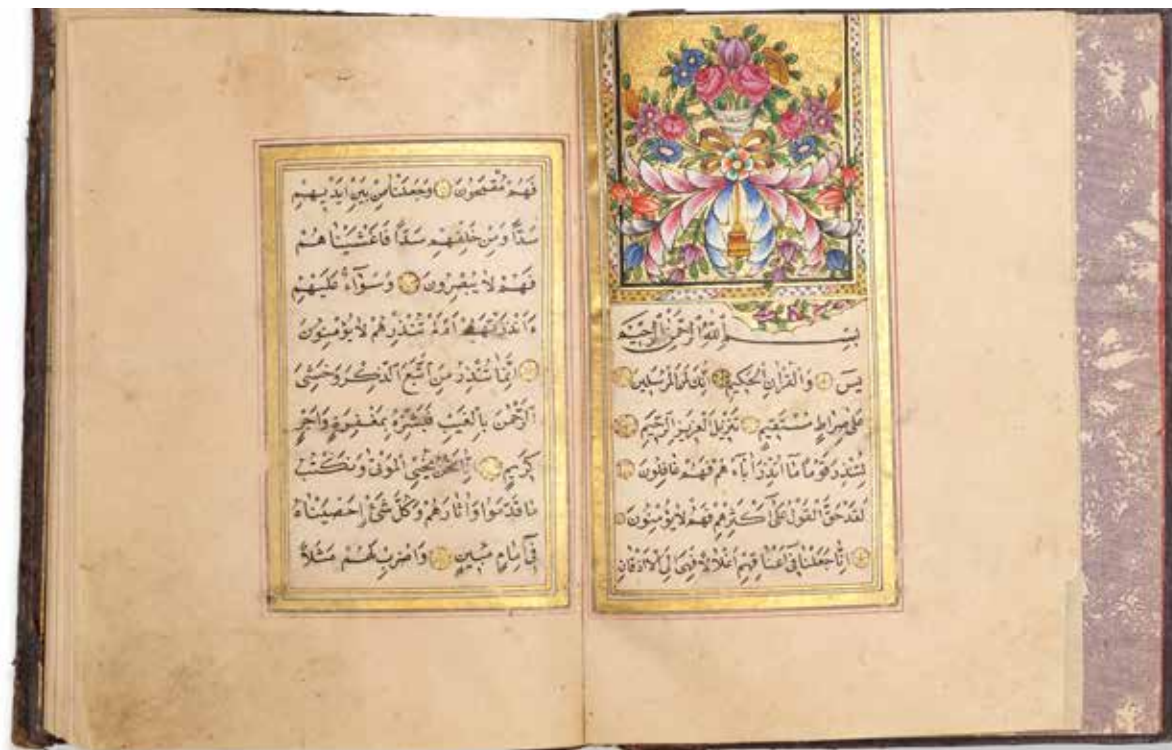 بِسْمِ اللهِ الرَّحْمٰنِ الرَّحِيمِ
يس وَالْقُرْاٰنِ الْحَكِيمِ اِنَّكَ لَمِنَ الْمُرْسَلِينَ
عَلٰى صِرَاطٍ مُسْتَقِيمٍ تَنْزِيلَ الْعَزِيزِ الرَّحِيمِ
لِتُنْذِرَ قَوْمًا مَا اُنْذِرَ اٰبَاءُ هُمْ فَهُمْ غَافِلُونَ
لَقَدْ حَقَّ الْقَوْلُ عَلٰى اَكْثَرِهِمْ فَهُمْ لَا يُؤْمِنُونَ
اِنَّا جَعَلْنَا فِى اَعْنَاقِهِمْ اَغْلَالًا فَهِىَ اِلَى الْاَذْقَانِ
فَهُمْ مُقْمَحُونَ وَجَعَلْنَا مِنْ بَيْنِ اَيْدِيهِمْ
سَدًّا وَمِنْ خَلْفِهِمْ سَدًّا فَاَغْشَيْنَا هُمْ
فَهُمْ لَا يُبْصِرُونَ وَسَوَاۤءٌ عَلَيْهِمْ
ءَاَنْذَرْتَهُمْ اَمْ لَمْ تُنْذِرْهُمْ لَا يُؤْمِنُونَ
اِنَّمَا تُنْذِرُ مَنِ اتَّبَعَ الذِّكْرَ وَخَشِىَ
الرَّحْمٰنَ بِالْغَيْبِ فَبَشِّرْهُ بِمَغْفِرَةٍ وَاَجْرٍ
كَرِيمٍ اِنَّا نَحْنُ نُحْيِى الْمَوْتٰى وَنَكْتُبُ
مَا قَدَّمُوا وَاٰثَارَهُمْ وَكُلَّ شَىْءٍ اَحْصَيْنَاهُ
فِى اِمَامٍ مُبِينٍ وَاضْرِبْ لَهُمْ مَثَلًا